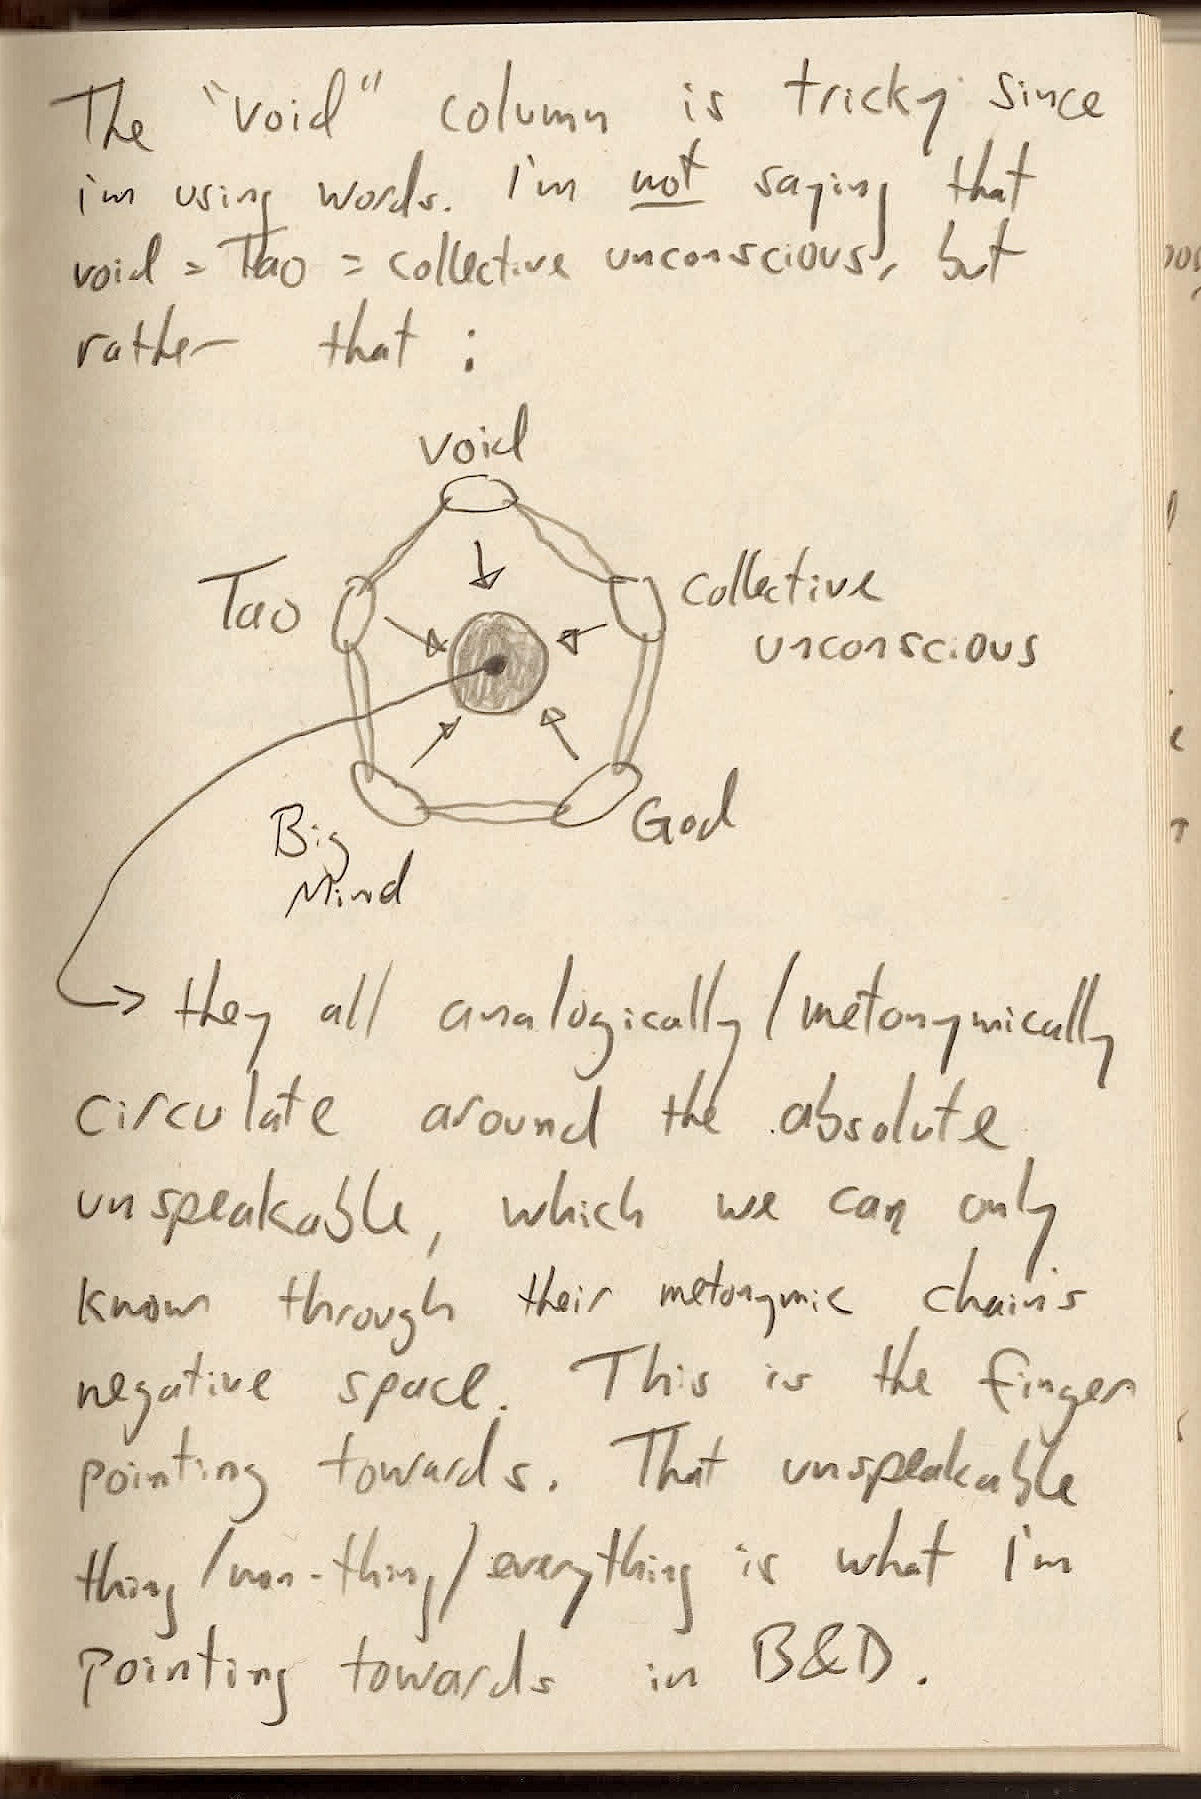 The "void" column is tricky since
i'm using words. I'm not saying that
void = Tao = collective unconscious, but
rather that :
void
Tao
Collective
unconscious
Big
Mind
God
they all analogically/metonymically
circulate around the absolute
unspeakable, which we can only
know through their metonymic chains
negative space. This is the finger
pointing towards. That unspeakable
thing/non-thing/everything is what I'm
pointing towards in B&D.